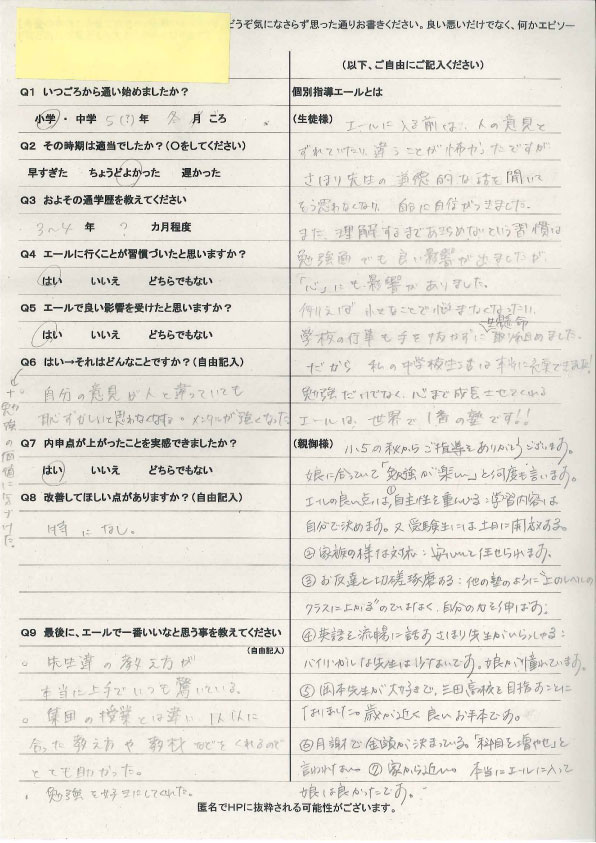 どうぞ気になさらず思った通りお書きください。良い悪いだけでなく、何かエピソー
Q1 いつごろから通い始めましたか?
小学・中学 5(?)年 冬月ごろ
Q2 その時期は適当でしたか?(〇をしてください)
早すぎた ちょうどよかった 遅かった
Q3 およその通学歴を教えてください
3〜4 年 ? カ月程度
Q4 エールに行くことが習慣づいたと思いますか?
はい いいえ どちらでもない
Q5 エールで良い影響を受けたと思いますか?
はい いいえ どちらでもない
Q6 はい→それはどんなことですか?(自由記入)
自分の意見が人と違っていても
恥ずかしいと思わなくなる。メンタルが強くなった
+勉強の価値に気づけた。
Q7 内申点が上がったことを実感できましたか?
はい いいえ どちらでもない
Q8 改善してほしい点がありますか?(自由記入)
特になし。
Q9 最後に、エールで一番いいなと思う事を教えてください
(自由記入)
。先生達の教え方が
本当に上手でいつも驚いている。
。集団の授業とは違い1人1人に
合った教え方や教材などをくれるので
とても助かった。
。勉強を好きにしてくれた。
(以下、ご自由にご記入ください)
個別指導エールとは
(生徒様) エールに入る前は、人の意見と
ずれていたり、違うことが怖かったですが
さほり先生の道徳的な話を聞いて
そう思わなくなり、自分に自信がつきました。
また、理解するまであきらめないという習慣は
勉強面でも良い影響が出ましたが、
「心」にも影響がありました。
例えば 小さなことで悩まなくなったり、
学校の行事も手を抜かずに一生懸命取り組めました。
だから 私の中学校生活は本当に充実できました!
勉強だけでなく、心まで成長させてくれる
エールは、世界で1番の塾です!!
(親御様) 小5の秋からご指導をありがとうございます。
娘に合っていて「勉強が楽しい」と何度も言います。
エールの良い点は、①自主性を重んじる:学習内容は
自分で決めます。又受験生には土日に開放する。
②家族の様な対応:安心して任せられます。
③お友達と切磋琢磨する:他の塾のように"上のレベルの
クラスに上がる"のではなく、自分の力を伸ばす。
④英語を流暢に話すさほり先生がいらっしゃる:
バイリンガルな先生は少ないです。娘が憧れています。
⑤岡本先生が大好きで、三田高校を目指すことに
なりました。歳が近く良いお手本です。
⑥月謝で金額が決まっている。「科目を増やせ」と
言われない。⑦家から近い。 本当にエールに入って
娘は良かったです。
匿名でHPに抜粋される可能性がございます。